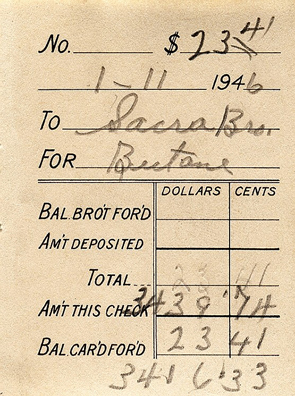 No. $ 23 41
1-11 1946
To Sacra Bro.
FOR Butane
DOLLARS CENTS
BAL. BRO'T FOR'D
AM'T DEPOSITED
TOTAL 23 41
AM'T THIS CHECK 3439 74
BAL. CAR'D FOR'D 23 41
341 6 33